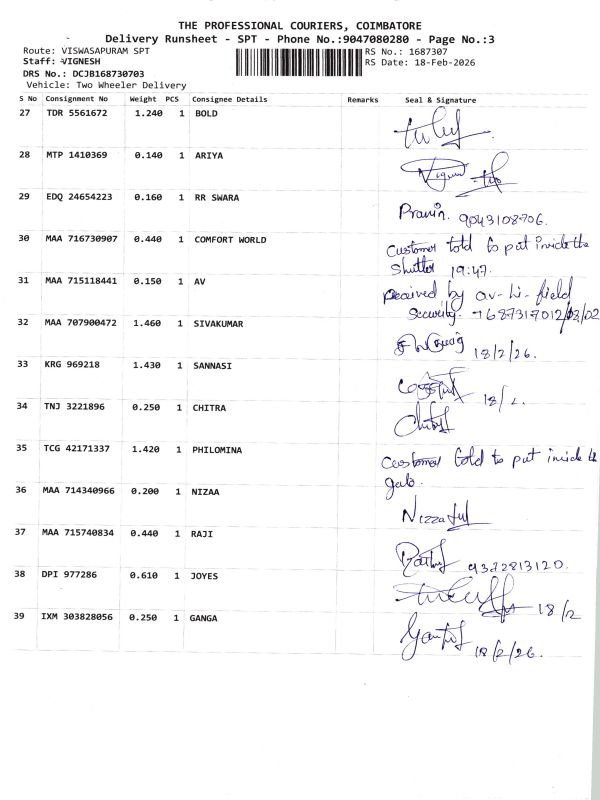 THE PROFESSIONAL COURIERS, COIMBATORE
Delivery Runsheet - SPT - Phone No.:9047080280 - Page No.:3
Route: VISWASAPURAM SPT RS No.: 1687307
Staff: VIGNESH RS Date: 18-Feb-2026
DRS No.: DCJB168730703
Vehicle: Two Wheeler Delivery
S No Consignment No Weight PCS Consignee Details Remarks Seal & Signature
27 TDR 5561672 1.240 1 BOLD
28 MTP 1410369 0.140 1 ARIYA
29 EDQ 24654223 0.160 1 RR SWARA
Pravin. 9043108706.
30 MAA 716730907 0.440 1 COMFORT WORLD
Customer told to put inside the
Shutter 19:47.
31 MAA 715118441 0.150 1 AV
Received by av-hi-field
Security.
32 MAA 707900472 1.460 1 SIVAKUMAR
18/2/26.
33 KRG 969218 1.430 1 SANNASI
34 TNJ 3221896 0.250 1 CHITRA
35 TCG 42171337 1.420 1 PHILOMINA
Customer told to put inside the
gate.
36 MAA 714340966 0.200 1 NIZAA
Nizza
37 MAA 715740834 0.440 1 RAJI
9372813120.
38 DPI 977286 0.610 1 JOYES
18/2
39 IXM 303828056 0.250 1 GANGA
18/2/26.